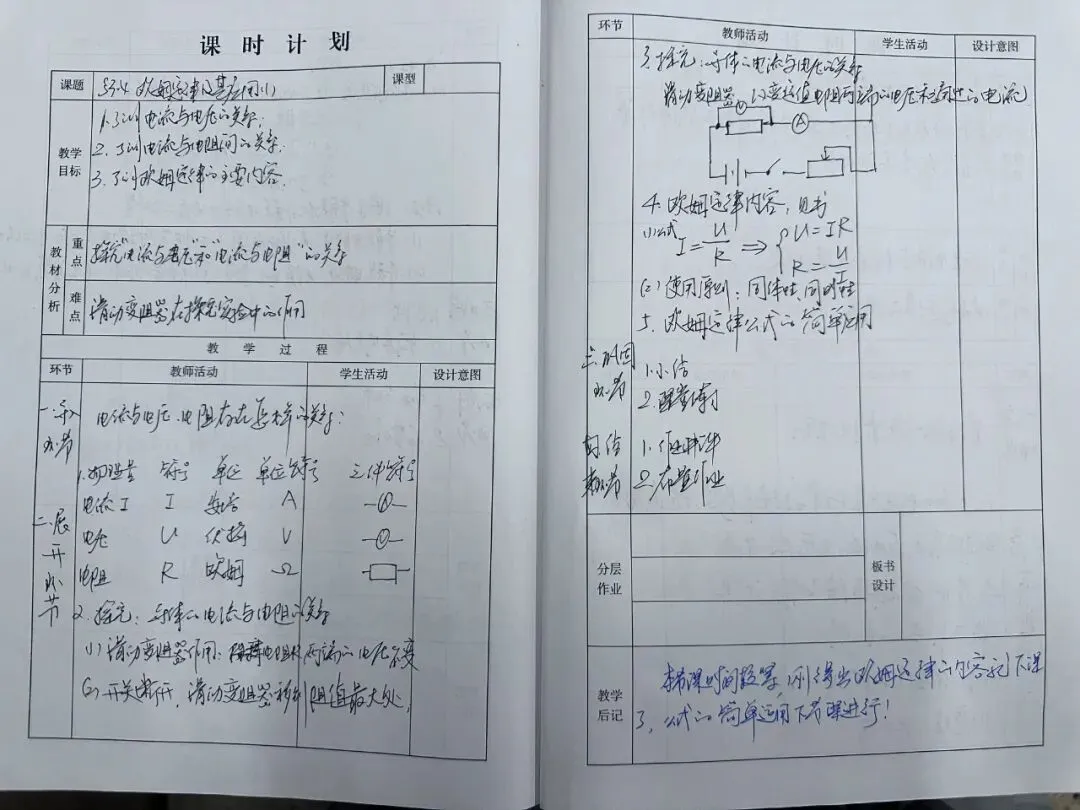 课时计划
课题 §3.4 欧姆定律及其应用(1) 课型
教学目标
1. 了解电流与电压的关系;
2. 了解电流与电阻间的关系;
3. 了解欧姆定律的主要内容.
教材分析
重点 探究“电流与电压”和“电流与电阻”的关系
难点 滑动变阻器在探究实验中的作用
教学过程
环节 教师活动 学生活动 设计意图
一、导入环节
电流与电压、电阻存在怎样的关系:
二、展开环节
1. 物理量 符号 单位 单位符号 元件符号
电流I I 安培 A A
电压 U 伏特 V V
电阻 R 欧姆 Ω
2. 探究: 导体的电流与电阻的关系
(1) 滑动变阻器作用: 两端的电压不变
(2) 开关断开, 滑动变阻器移到阻值最大处,
环节 教师活动 学生活动 设计意图
3. 探究: 导体的电流与电压的关系
滑动变阻器 改变定值电阻两端的电压和通过的电流
V A
4. 欧姆定律内容, 见书
(1) 公式 I = U/R ⇒ { U = IR
R = U/I
(2) 使用原则: 同体性、同时性
5. 欧姆定律公式的简单应用
三、巩固环节
1. 小结
2.
四、总结 环节
1.
2. 布置作业
分层作业
板书设计
教学后记
本节课时间较紧, 得出欧姆定律的内容就下课
了, 公式的简单运用下节课进行!